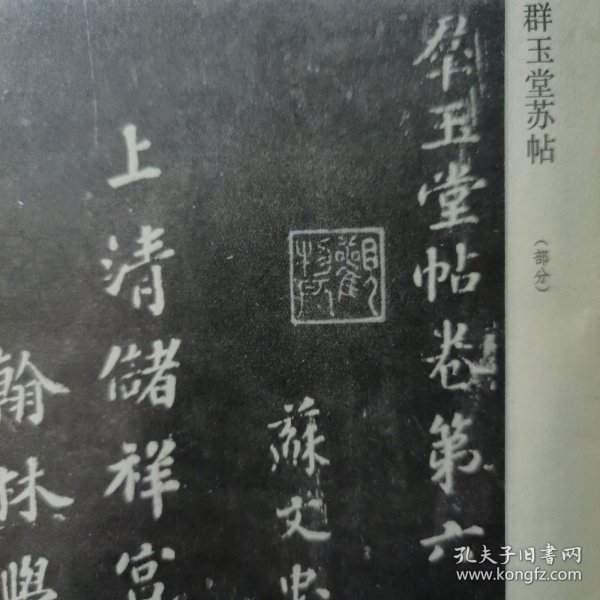 群玉堂苏帖
（部分）
羣玉堂帖卷第六
蘇文忠
上清儲祥宫
翰林學
孔夫子旧书网
www.kongfz.com